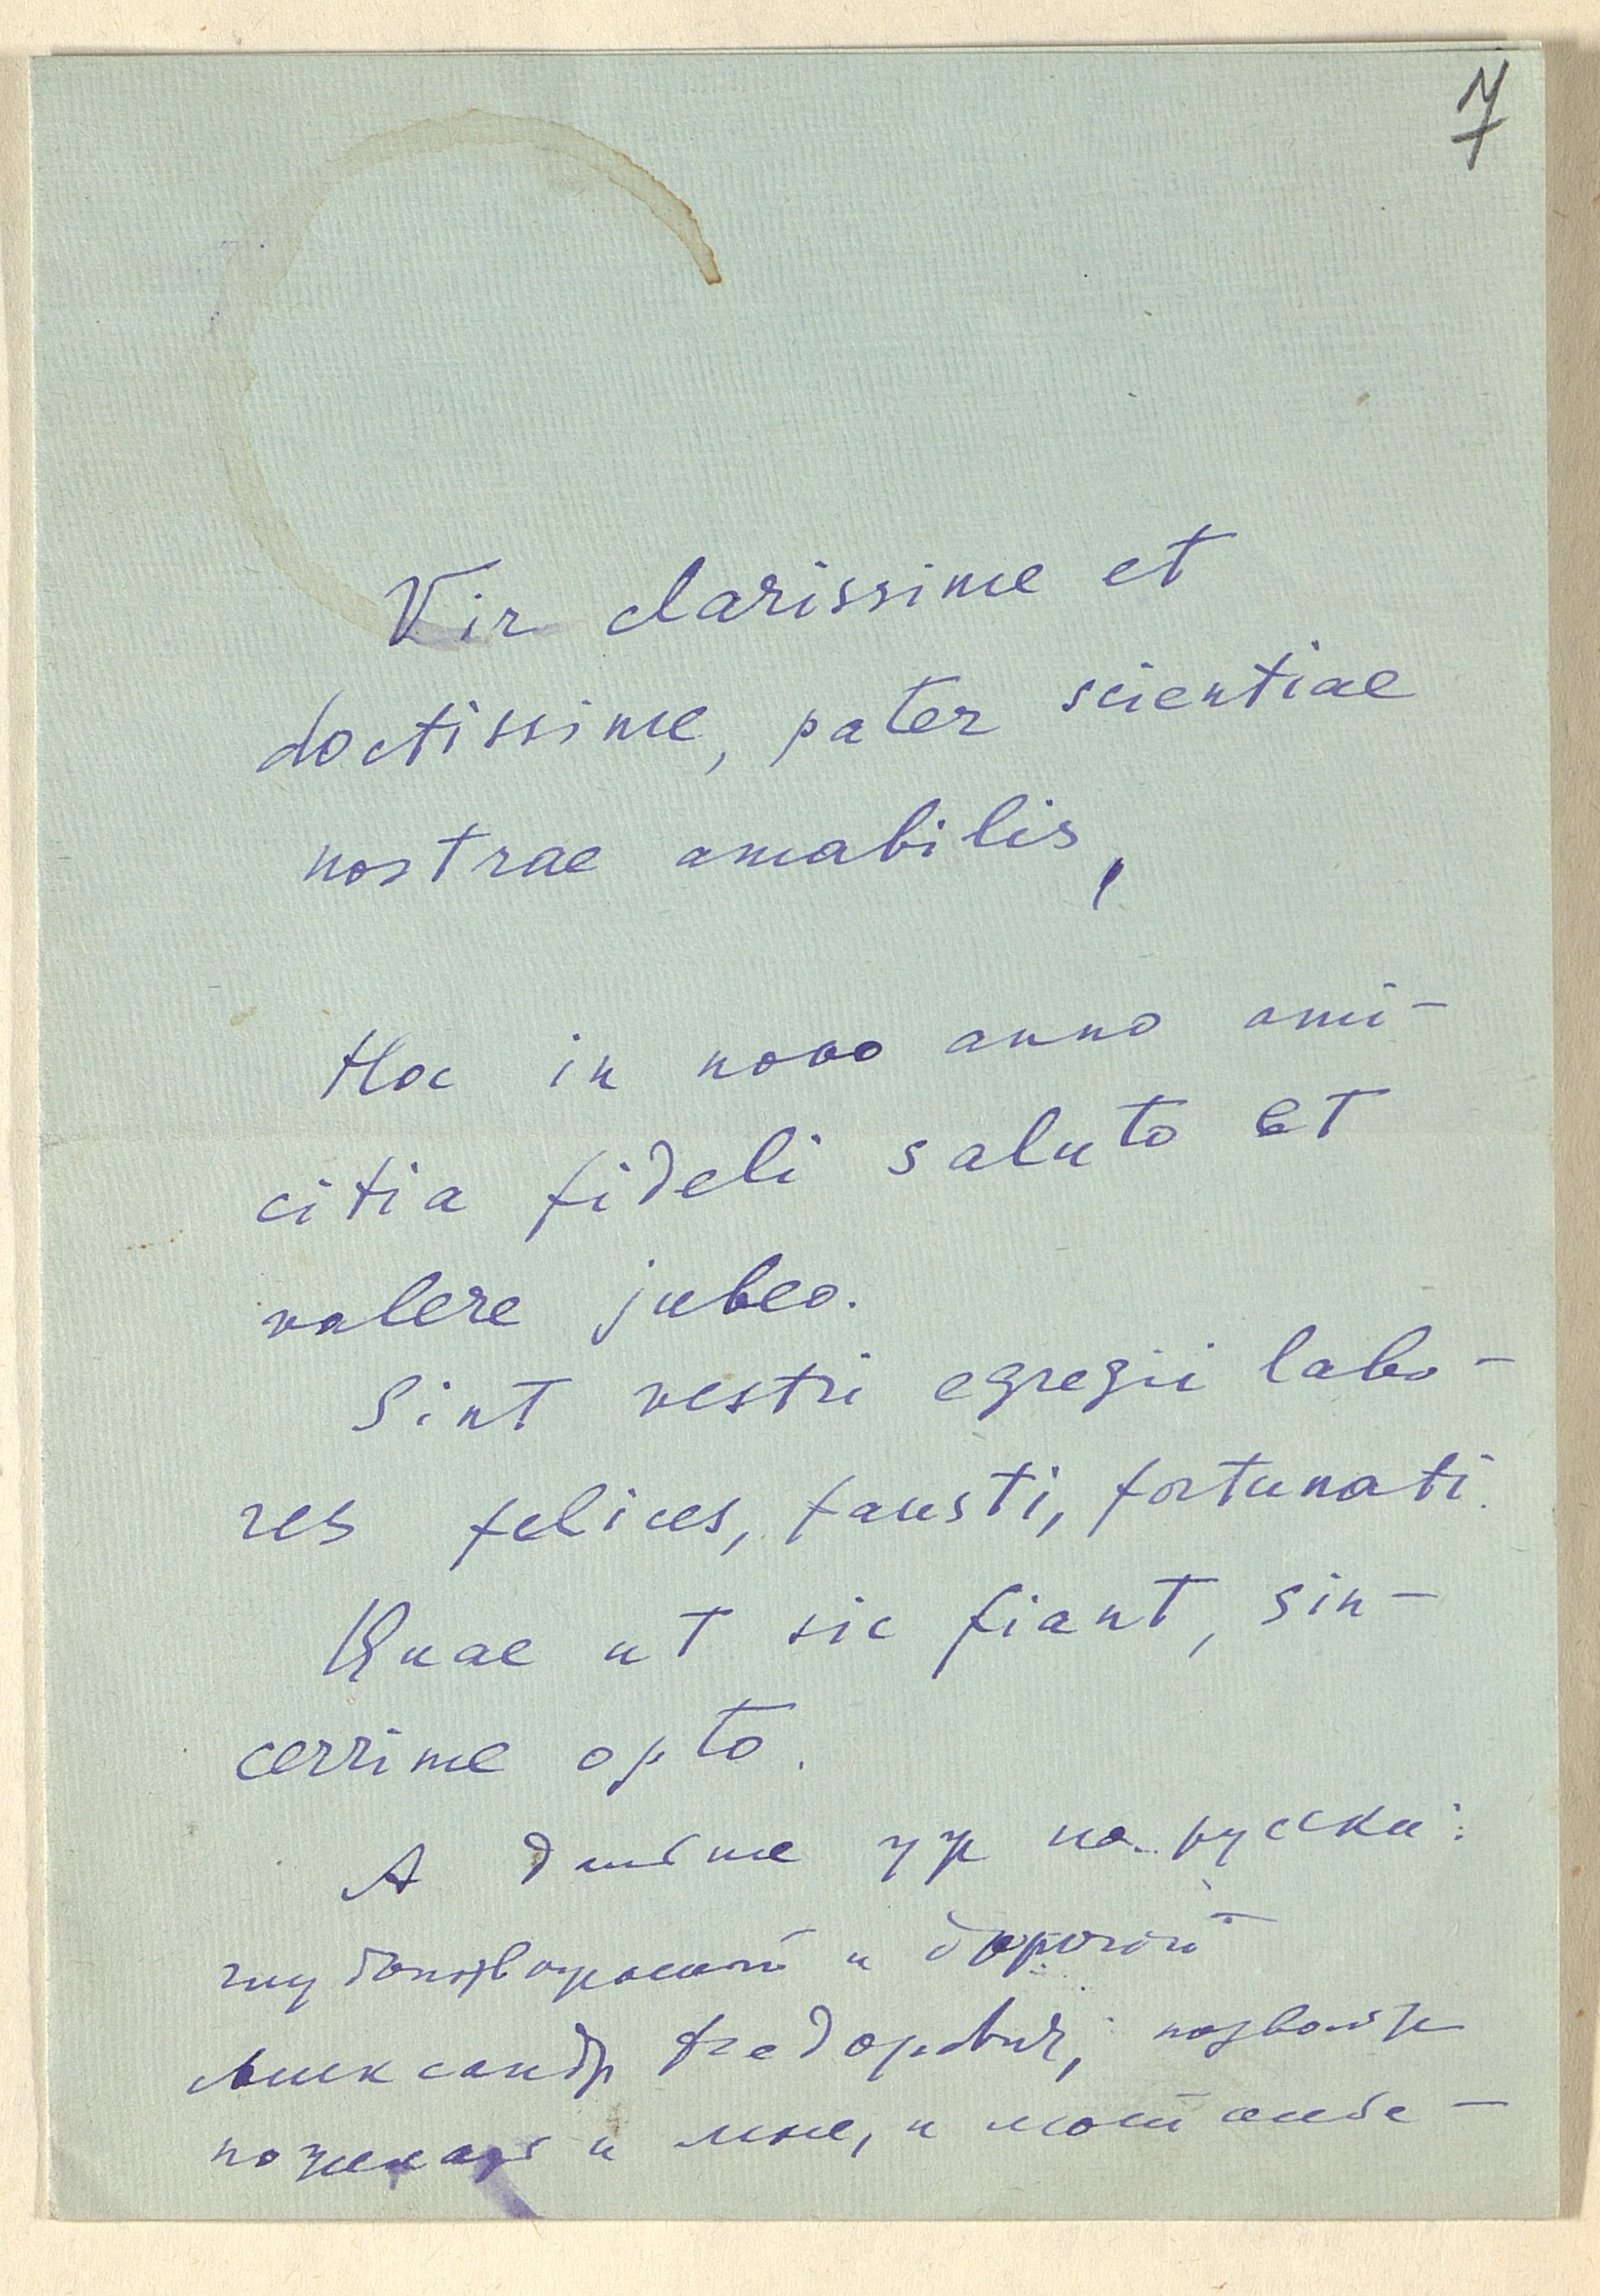 7
Vir clarissime et
doctissime, pater scientiae
nostrae amabilis,
Hoc in novo anno ami-
citia fideli saluto et
valere jubeo.
Sint vestri egregii labo-
res felices, fausti, fortunati.
Quae ut sic fiant, sin-
cerrime opto.
А дальше уж по-русски:
глубокоуважаемый и дорогой
Александр Федорович, позвольте
пожелать и мне, и моей семье -